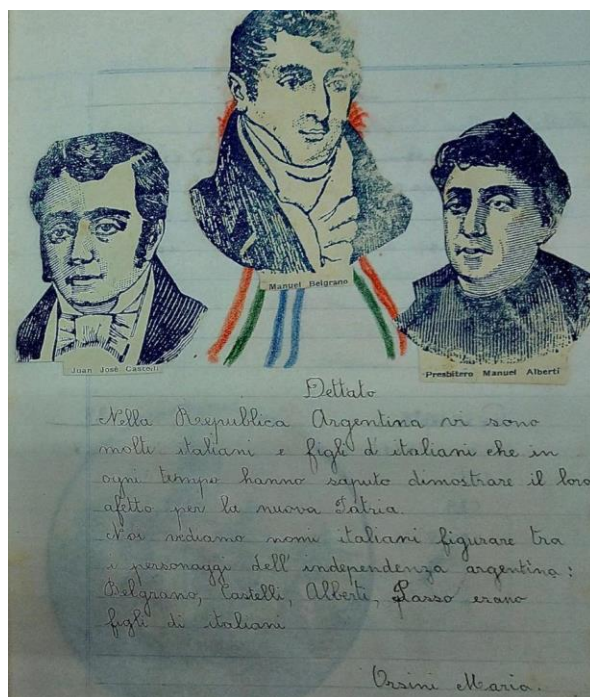 Manuel Belgrano
Juan José Castelli
Presbítero Manuel Alberti
Dettato
Nella Rrepublica Argentina vi sono
molti italiani e figli di italiani che in
ogni tempo hanno saputo dimostrare il loro
afetto per la nuova Patria.
Noi vediamo nomi italiani figurare tra
i personaggi dell'independenza argentina:
Belgrano, Castelli, Alberti, Passo erano
figli di italiani
Orsini Maria